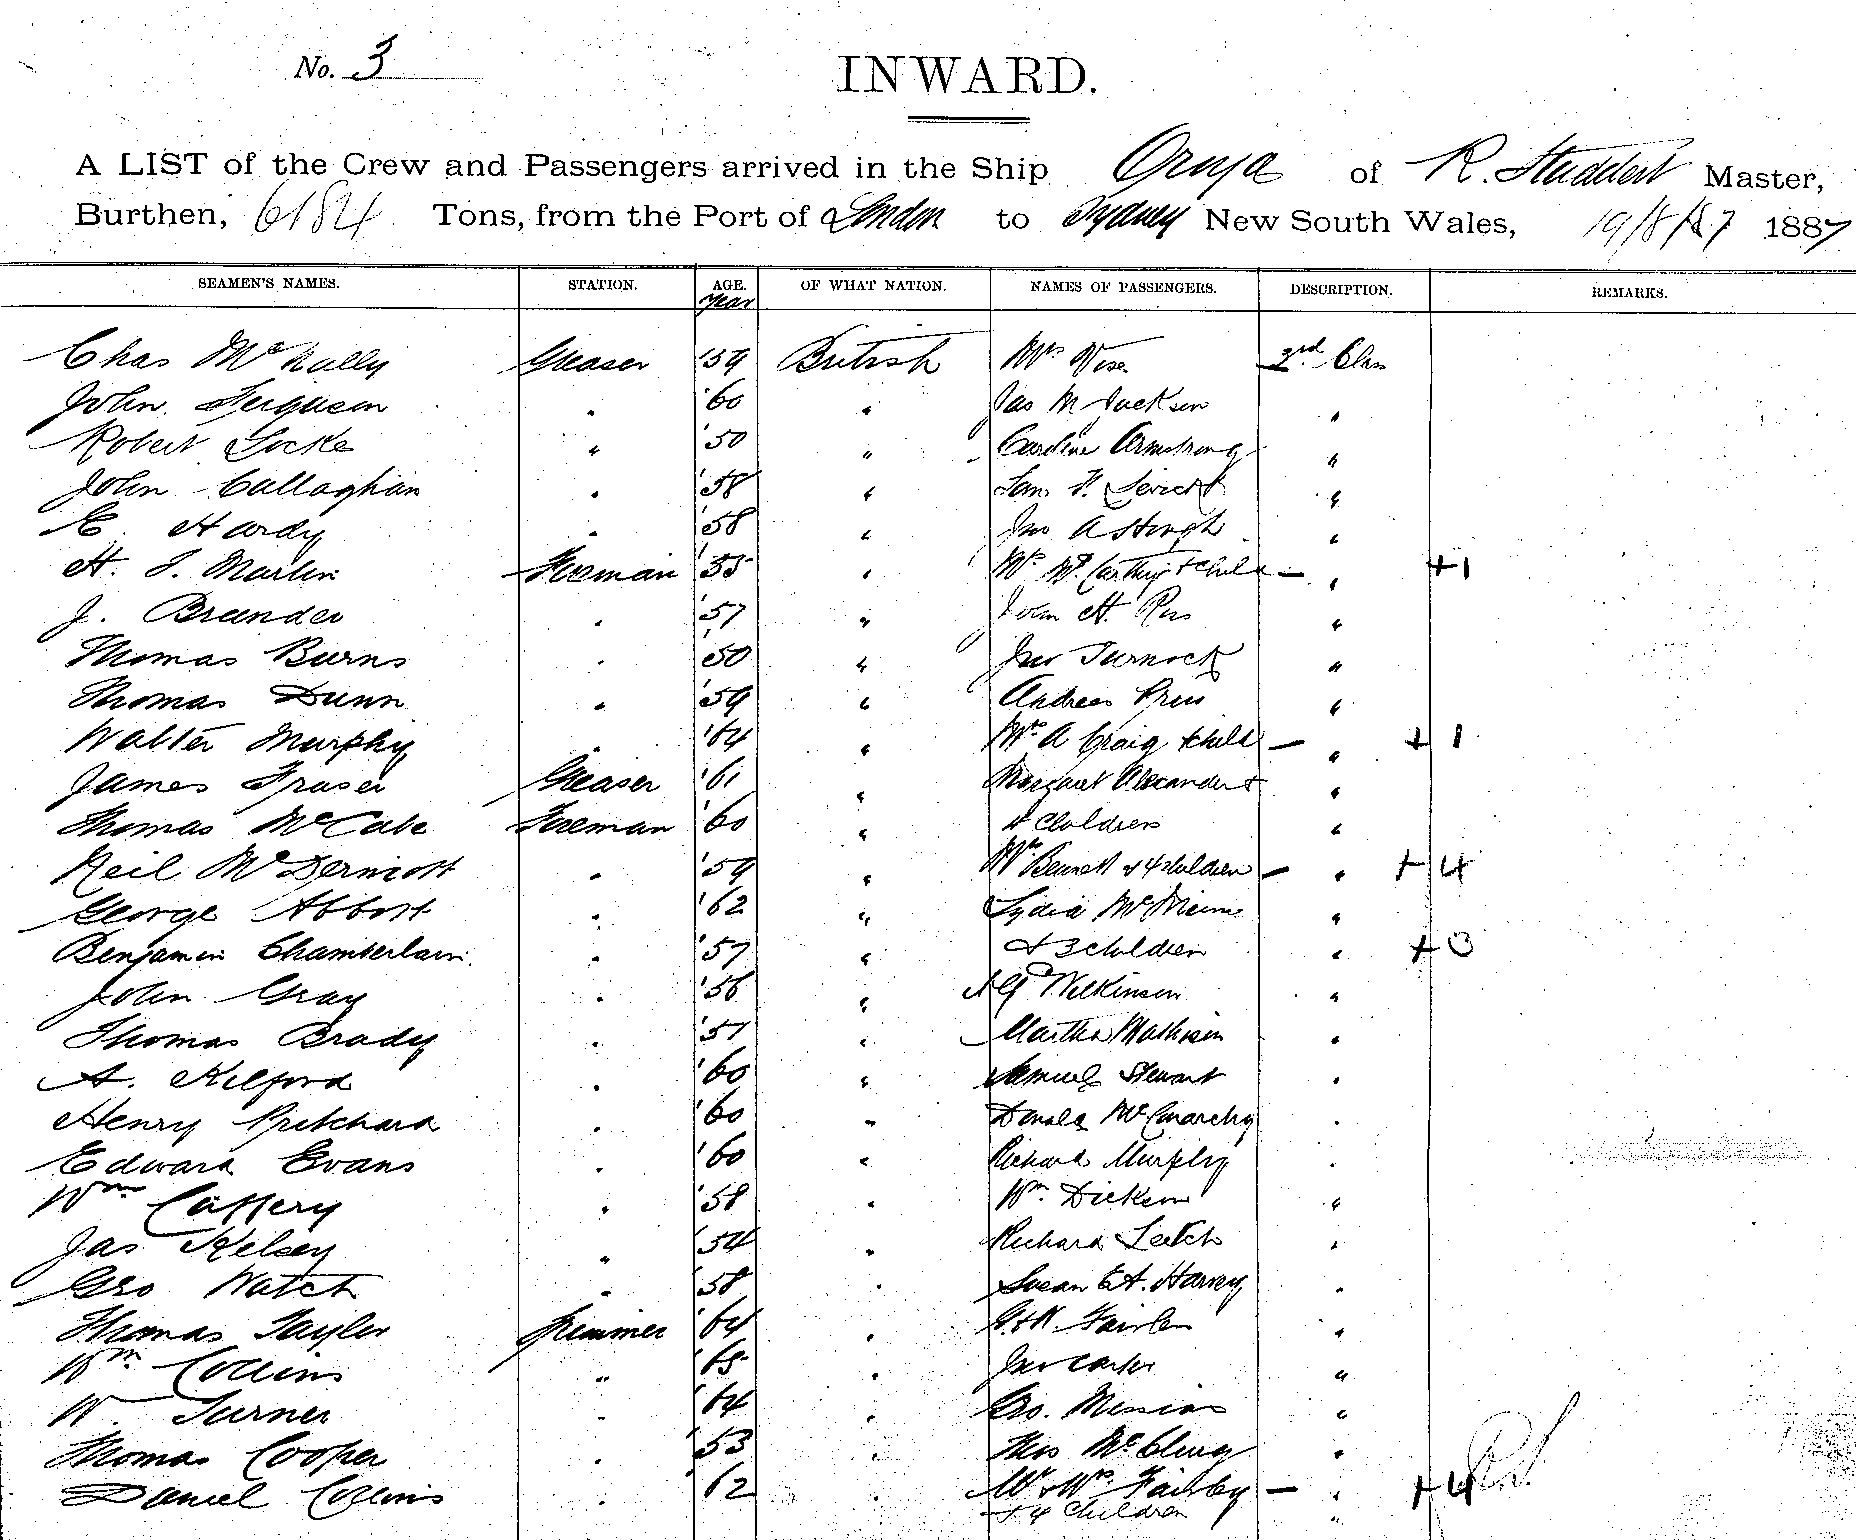 No. 3
INWARD.
A LIST of the Crew and Passengers arrived in the Ship Oruya of R. Studdert Master,
Burthen, 6184 Tons, from the Port of London to Sydney New South Wales, 19/8/87 1887
SEAMEN'S NAMES. STATION. AGE. OF WHAT NATION. NAMES OF PASSENGERS. DESCRIPTION. REMARKS.
Year
Chas McNally Greaser '59 British Mrs Wise 3rd Class
John Ferguson " '60 " Jas M Jackson "
Robert Locke " '50 " Caroline Armstrong "
John Callaghan " '58 " Sam "
E. Hardy " '58 " Jno A "
H. J. Martin Fireman '55 " Mrs McCarthy + child — " +1
J. Brander " '57 " John H. "
Thomas Burns " '50 " Jno Turnock "
Thomas Dunn " '59 " Andrew "
Walter Murphy " '64 " Mrs A Craig + child — " + 1
James Fraser Greaser '61 " Margaret Alexander + "
Thomas McCabe Fireman '60 " 4 Children "
Neil McDermott " '59 " Mrs Bennett + 4 children — " + 4
George Abbott " '62 " Lydia "
Benjamin Chamberlain " '57 " + 3 children " + 3
John Gray " '56 " Wilkinson "
Thomas Brady " '57 " Martha Mathison "
A. Kilford " '60 " Samuel Stewart "
Henry Pritchard " '60 " Donald "
Edward Evans " '60 " Richard Murphy "
Wm Caffery " '58 " Wm. Dickson "
Jas Kelsey " '54 " Richard Leetch "
Geo Watch " '58 " Susan E A. Harvey "
Thomas Taylor Trimmer '64 " "
Wm Collins " '65 " Jno Carter "
W. Turner " '64 " Geo. "
Thomas Cooper " '53 " Thos McClurg "
Daniel Collins " '62 " Mr + Mrs Fairley — " + 4
+ 4 Children "